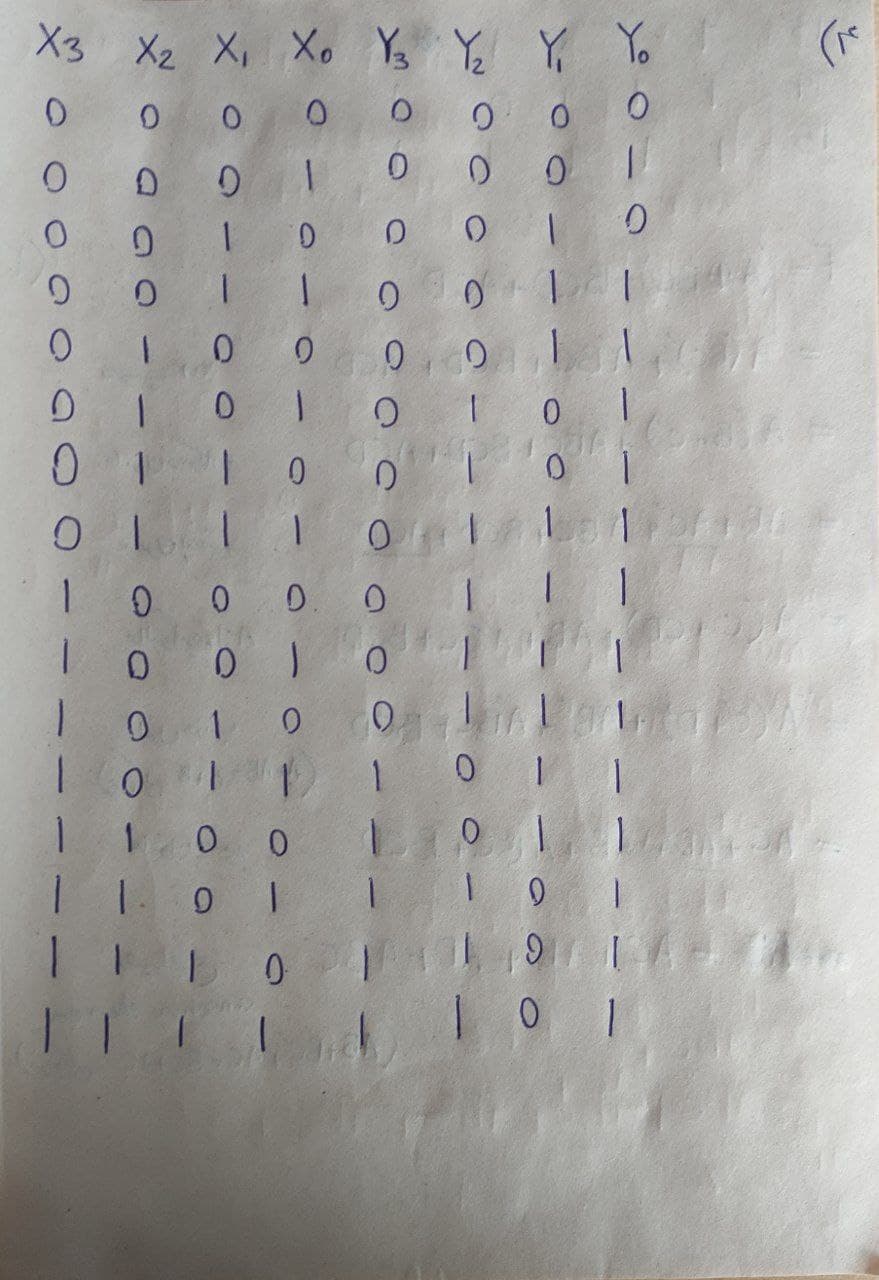 X3 X2 X1 X0 Y3 Y2 Y1 Y0 (۳
0 0 0 0 0 0 0 0
0 0 0 1 0 0 0 1
0 0 1 0 0 0 1 0
0 0 1 1 0 0 1 1
0 1 0 0 0 0 1 1
0 1 0 1 0 1 0 1
0 1 1 0 0 1 0 1
0 1 1 1 0 1 1 1
1 0 0 0 0 1 1 1
1 0 0 1 0 1 1 1
1 0 1 0 0 1 1 1
1 0 1 1 1 0 1 1
1 1 0 0 1 0 1 1
1 1 0 1 1 1 0 1
1 1 1 0 1 1 0 1
1 1 1 1 1 1 0 1